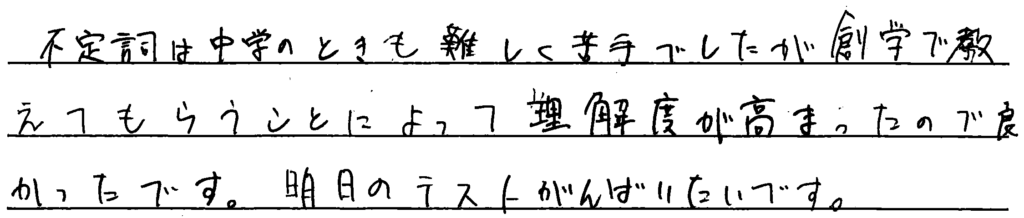 不定詞は中学のときも難しく苦手でしたが創学で教
えてもらうことによって理解度が高まったので良
かったです。明日のテストがんばりたいです。